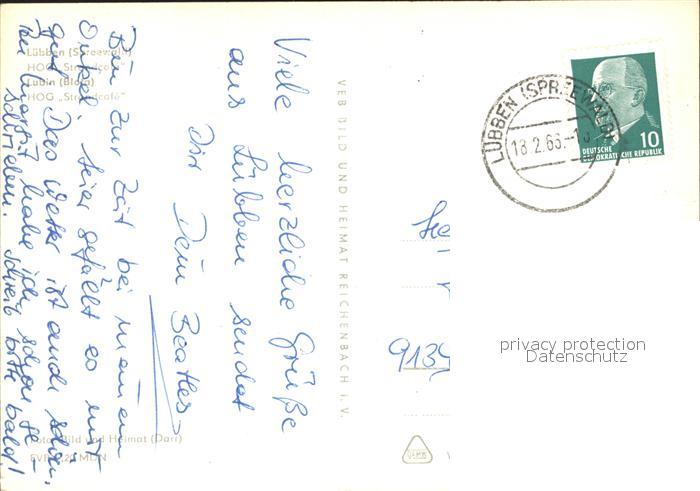 Lübben (Spreewald)
HOG „Strandcafé"
Lubin (Błota)
HOG „Strandcafé"
Viele herzliche Grüße
aus Lübben sendet
Dir Dein Beatles-
Bin zur Zeit bei meinem
Onkel. hier gefällt es mir
gut. Das Wetter ist auch schön.
bei habe ich schon ge-
schrieben. Schreib bitte bald!
Foto: Bild und Heimat (Darr)
EVP 0,20 MDN
VEB BILD UND HEIMAT REICHENBACH i. V.
LÜBBEN (SPREEWALD)
18.2.65
10
DEUTSCHE
DEMOKRATISCHE REPUBLIK
9134
privacy protection
Datenschutz